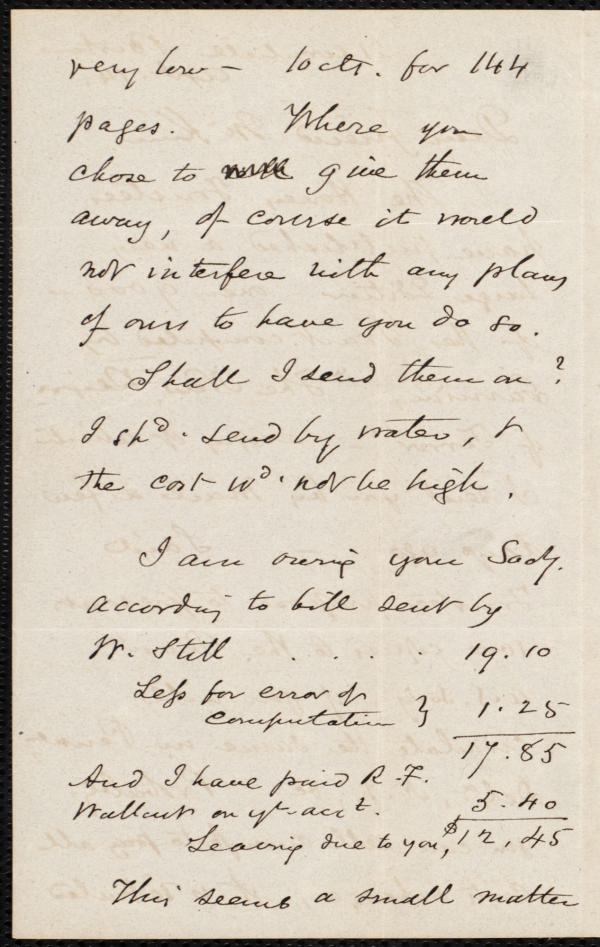 very low – 10 cts. for 144
pages. Where you
chose to give them
away, of course it would
not interfere with any plans
of ours to have you do so.
Shall I send them on?
I shd. send by water, &
the cost wd. not be high.
I am owing your Socy.
according to bill sent by
W. Still . . . . 19.10
Less for error of
computation } 1.25
17.85
And I have paid R. F.
Wallcut on yr acct. 5.40
Leaving due to you, $12,45
This seems a small matter